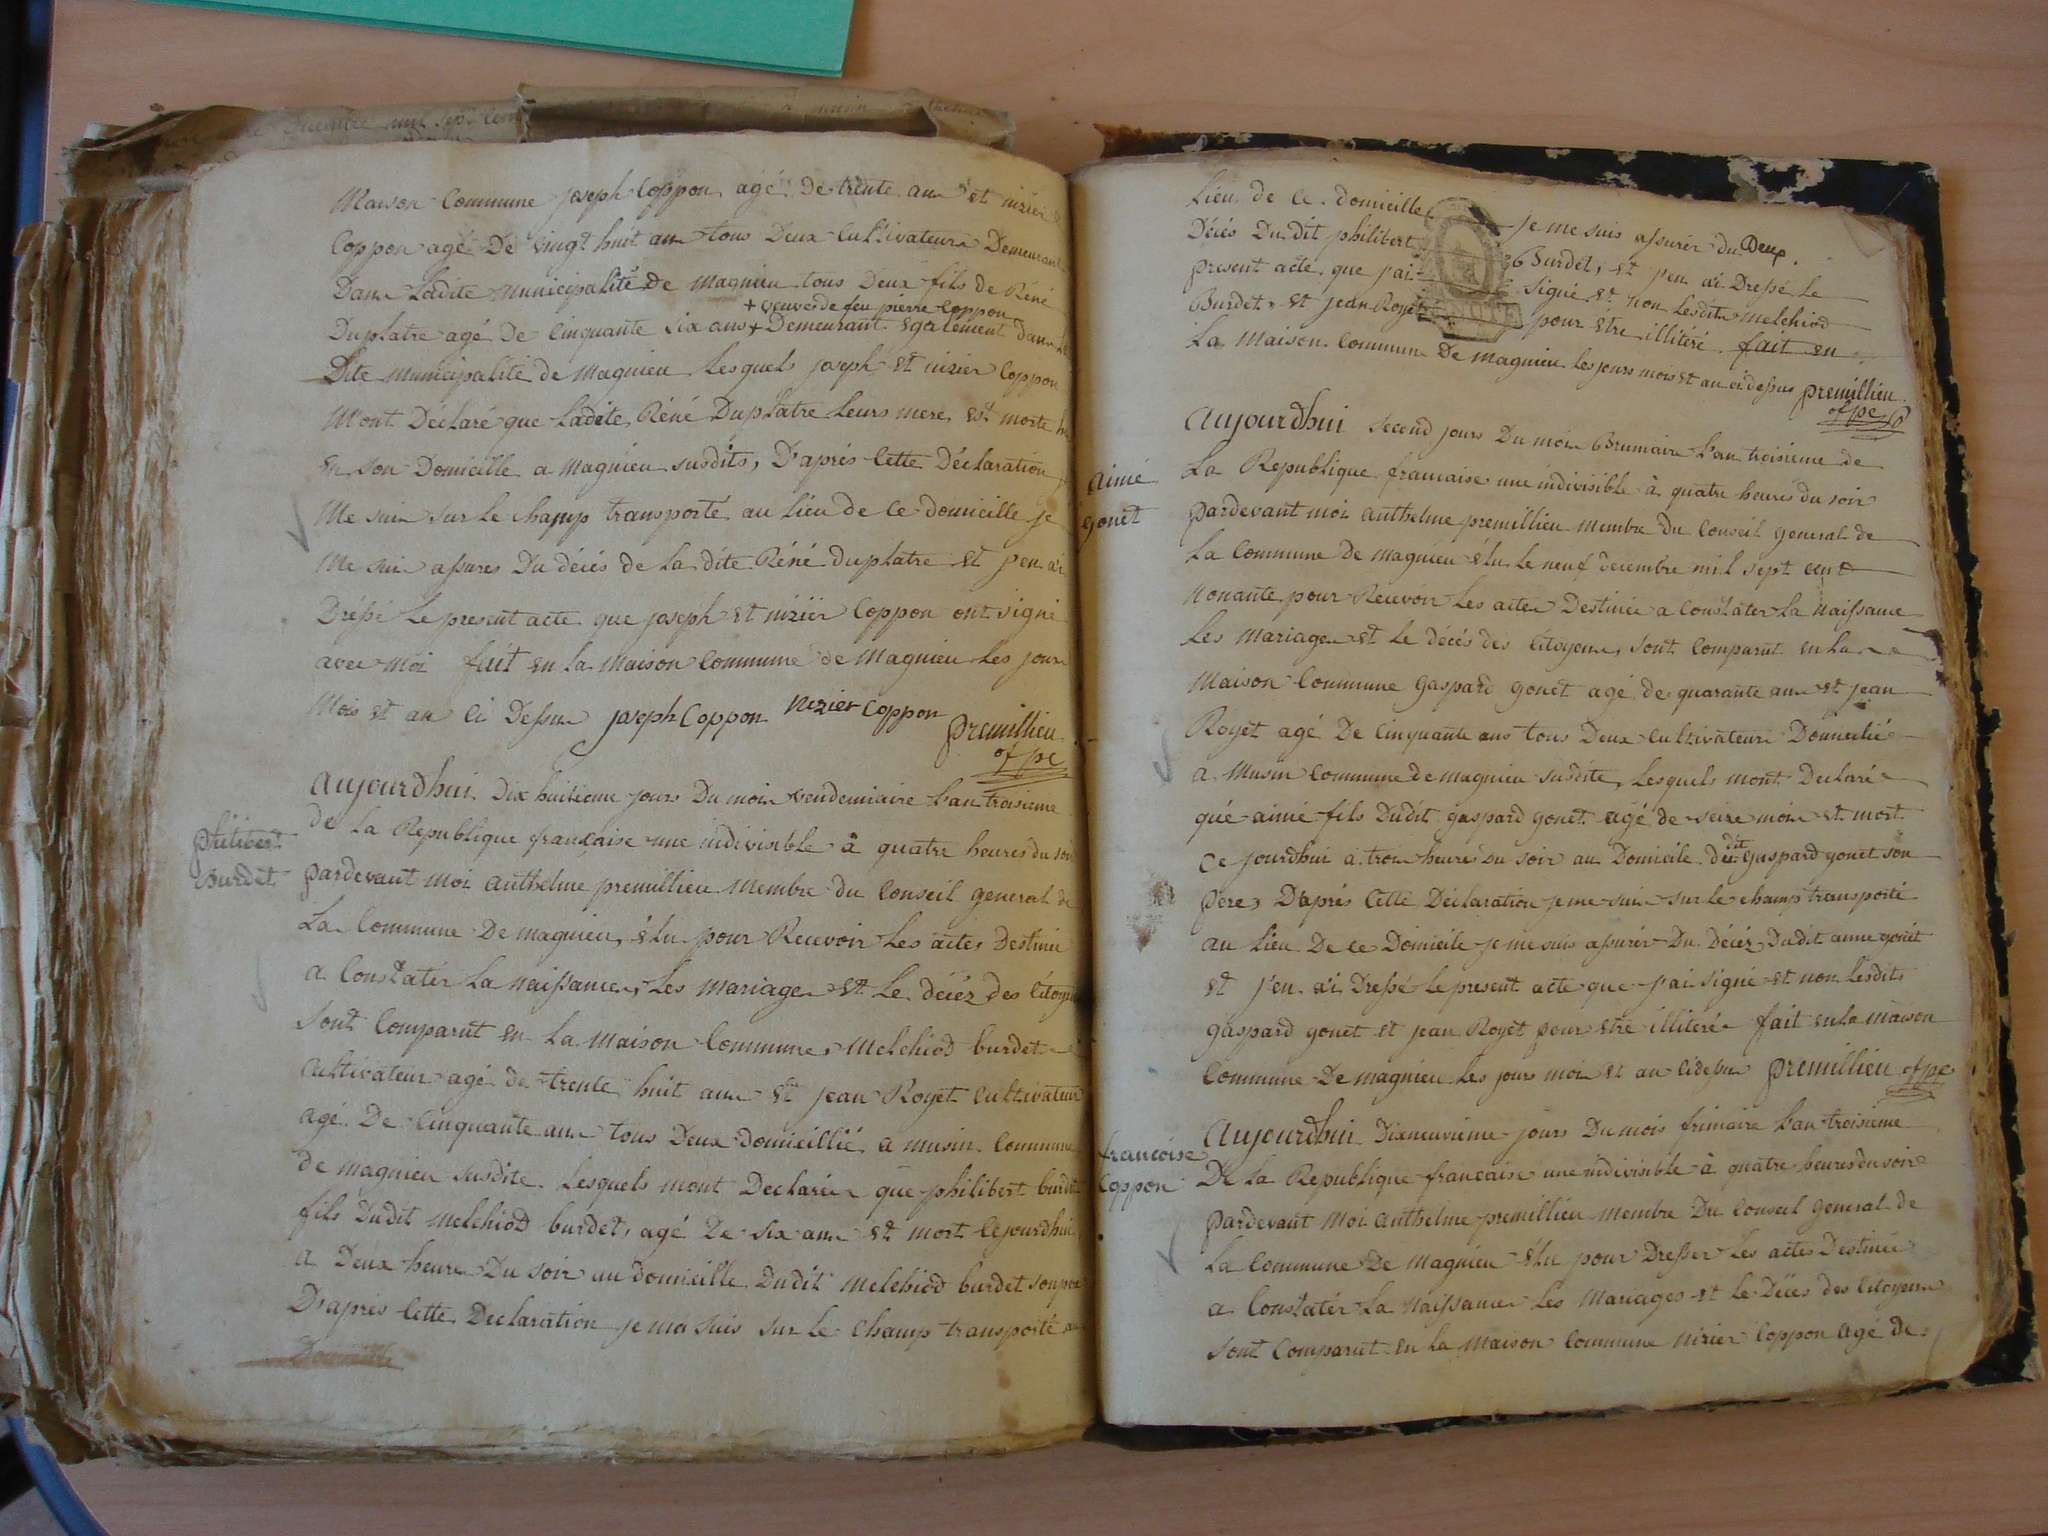 Maison Commune joseph Coppon agé de trente ans et nizier
Coppon agé De vingt huit ans tous Deux Cultivateurs Demeurant
Dans Ladite municipalité de magnieu tous Deux fils de Réné
+ veuve de feu pierre Coppon
Duplatre agé de Cinquante six ans + Demeurant egalement dans
Dite municipalité de Magnieu Lesquels joseph et nizier Coppon
Mont Déclaré que Ladite Réné Duplatre Leurs mere est morte
en son Domicille a Magnieu susdits, D'aprés Cette Déclaration
Me suis sur Le champ transporté au Lieu de Ce domicille je
Me suis assures Du décés de La dite Réné duplatre et j'en ai
Dréssé Le present acte que joseph et nizier Coppon ont signé
avec Moi fait en La Maison Commune de Magnieu Les jour
Mois et an Ci Dessus joseph Coppon nezier Coppon
premillieu
of pc
Philibert
Burdet
aujourdhui Dix huitieme jours Du mois vendemiaire L'an troisieme
de La Republique française une indivisible à quatre heures du soir
pardevant moi anthelme premillieu Membre du Conseil general de
La Commune De magnieu, élu pour Recevoir Les actes Destiné
a Constatér La naissances, Les Mariages et Le décéz des Citoyens
sont Comparut en La Maison Commune, Melchiod burdet
Cultivateur agé de trente huit ans et jean Royet Cultivateur
agé De Cinquante ans tous Deux domicillié a musin Commune
de magnieu susdite. Lesquels mont Declaré que philibert burdet
fils Dudit Melchiod burdet, agé De six ans et mort Cejourdhui
a Deux heures Du soir au domicille Dudit Melchiod burdet son pere
D'aprés Cette Declaration je ma suis sur Le Champ transporté au
Lieu de Ce domicille je me suis assurér du Deux.
Décés Du dit philibert Burdet, et j'en ai Dressé Le
present acte que j'ai signé et non Lesdits Melchiod
Burdet et jean Royet pour étre illitéré fait en
La Maison Commune De magnieu Les jours mois et an ci dessus premillieu
of pc
aimé
gonet
aujourdhui second jours Du mois Brumaire L'an troisieme de
La Republique francaise une indivisible à quatre heures du soir
pardevant moi anthelme premillieu membre Du Conseil general de
La Commune De magnieu élu Le neuf decembre mil sept cent
nonante pour Recevoir Les actes Destinés a Constater La naissance
Les Mariages et Le décés des Citoyens, sont Comparut en La
Maison Commune gaspard gonet agé de quarante ans et jean
Royet agé De Cinquante ans tous Deux Cultivateurs Domicilié
a Musin Commune de magnieu susdite, Lesquels mont Declaré
qué aimé fils Dudit gaspard gonet agé de seize mois et mort
Ce jourdhui a trois heures Du soir au Domicile dudit gaspard gonet son
pere, D'aprés Cette Déclaration je me suis sur Le champ transporté
au Lieu De Ce Domicile je me suis assurér Du Décéz Dudit aime gonet
et j'en ai Dressé Le present acte que j'ai signé et non Lesdits
gaspard gonet et jean Royet pour etre illiteré fait en La Maison
Commune De magnieu Les jours mois et an ci dessus premillieu of pc
francoise
Coppon
Aujourdhui Dixneuvieme jours Du mois frimaire L'an troisieme
De La Republique francaise une indivisible à quatre heures du soir
pardevant Moi anthelme premillieu membre Du Conseil general de
La Commune De Magnieu élu pour Dresser Les actes Destinés
a Constatér La Naissances Les Mariages et Le Décés des Citoyens
sont Comparut en La Maison Commune nizier Coppon agé de